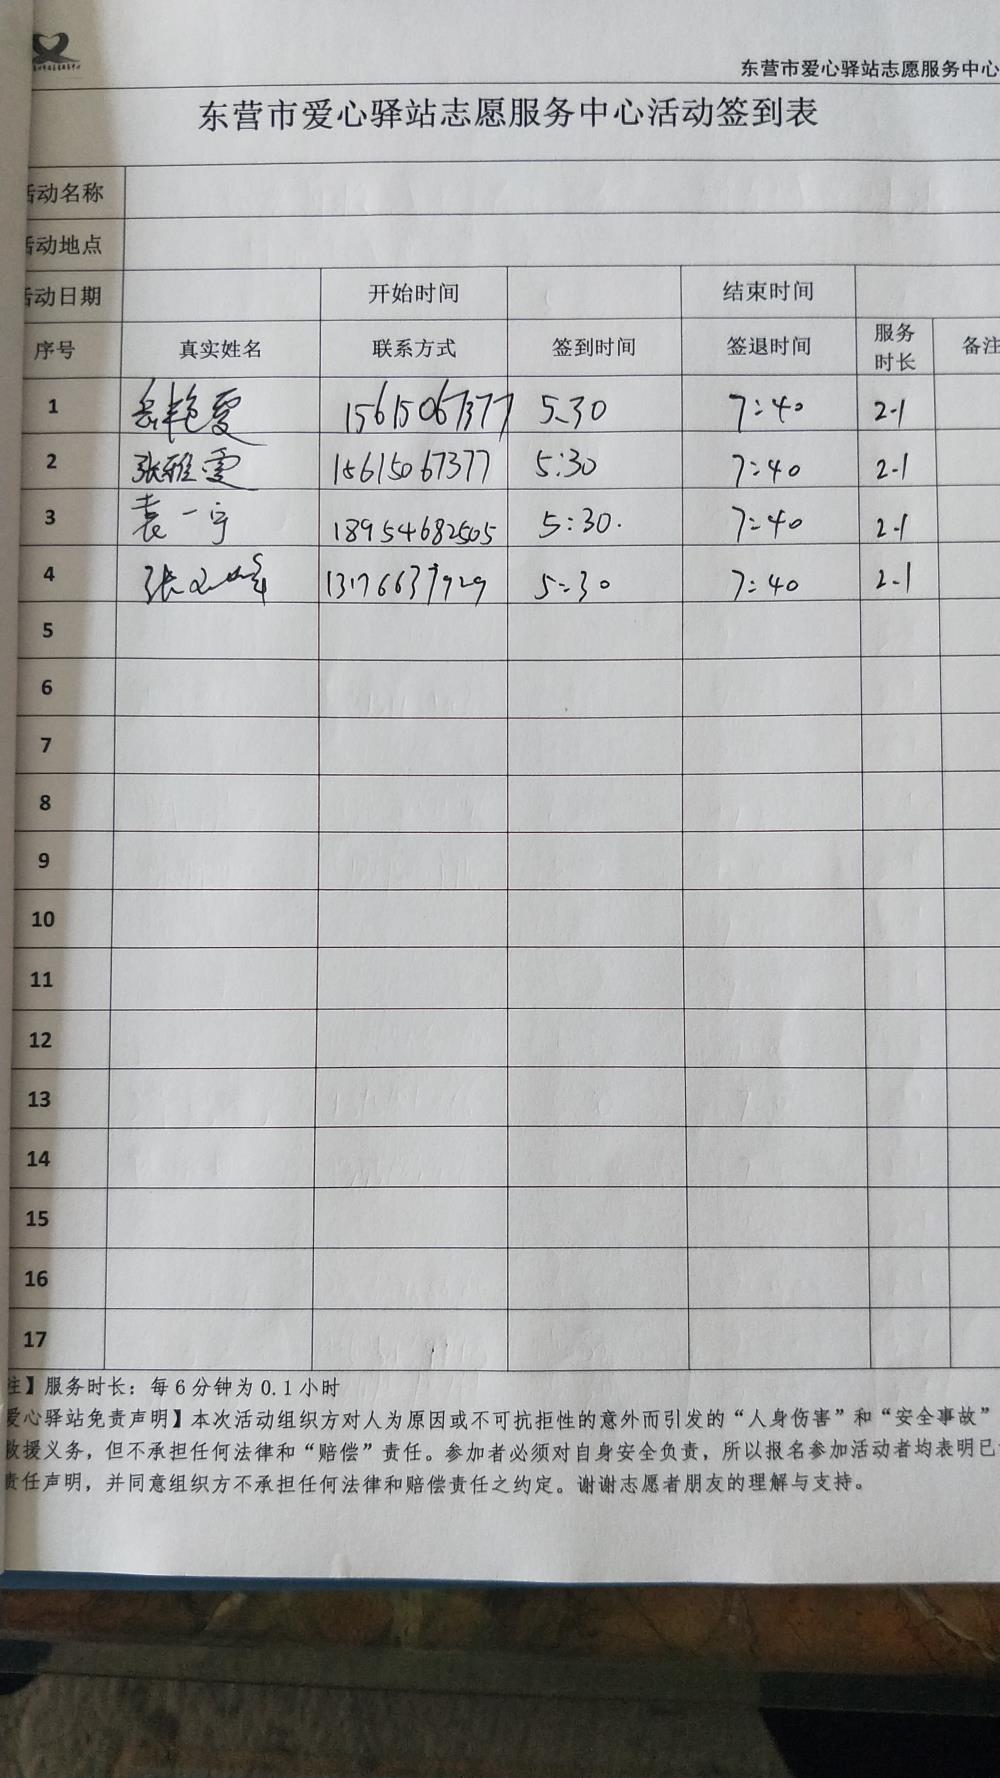 东营市爱心驿站志愿服务中心
东营市爱心驿站志愿服务中心活动签到表
活动名称
活动地点
活动日期 开始时间 结束时间
序号 真实姓名 联系方式 签到时间 签退时间 服务时长 备注
1 15615067377 5:30 7:40 2.1
2 张雅雯 15615067377 5:30 7:40 2.1
3 袁一宁 18954682505 5:30. 7:40 2.1
4 张 峰 13176637929 5:30 7:40 2.1
5
6
7
8
9
10
11
12
13
14
15
16
17
注】服务时长：每6分钟为0.1小时
爱心驿站免责声明】本次活动组织方对人为原因或不可抗拒性的意外而引发的“人身伤害”和“安全事故”
救援义务，但不承担任何法律和“赔偿”责任。参加者必须对自身安全负责，所以报名参加活动者均表明已
责任声明，并同意组织方不承担任何法律和赔偿责任之约定。谢谢志愿者朋友的理解与支持。